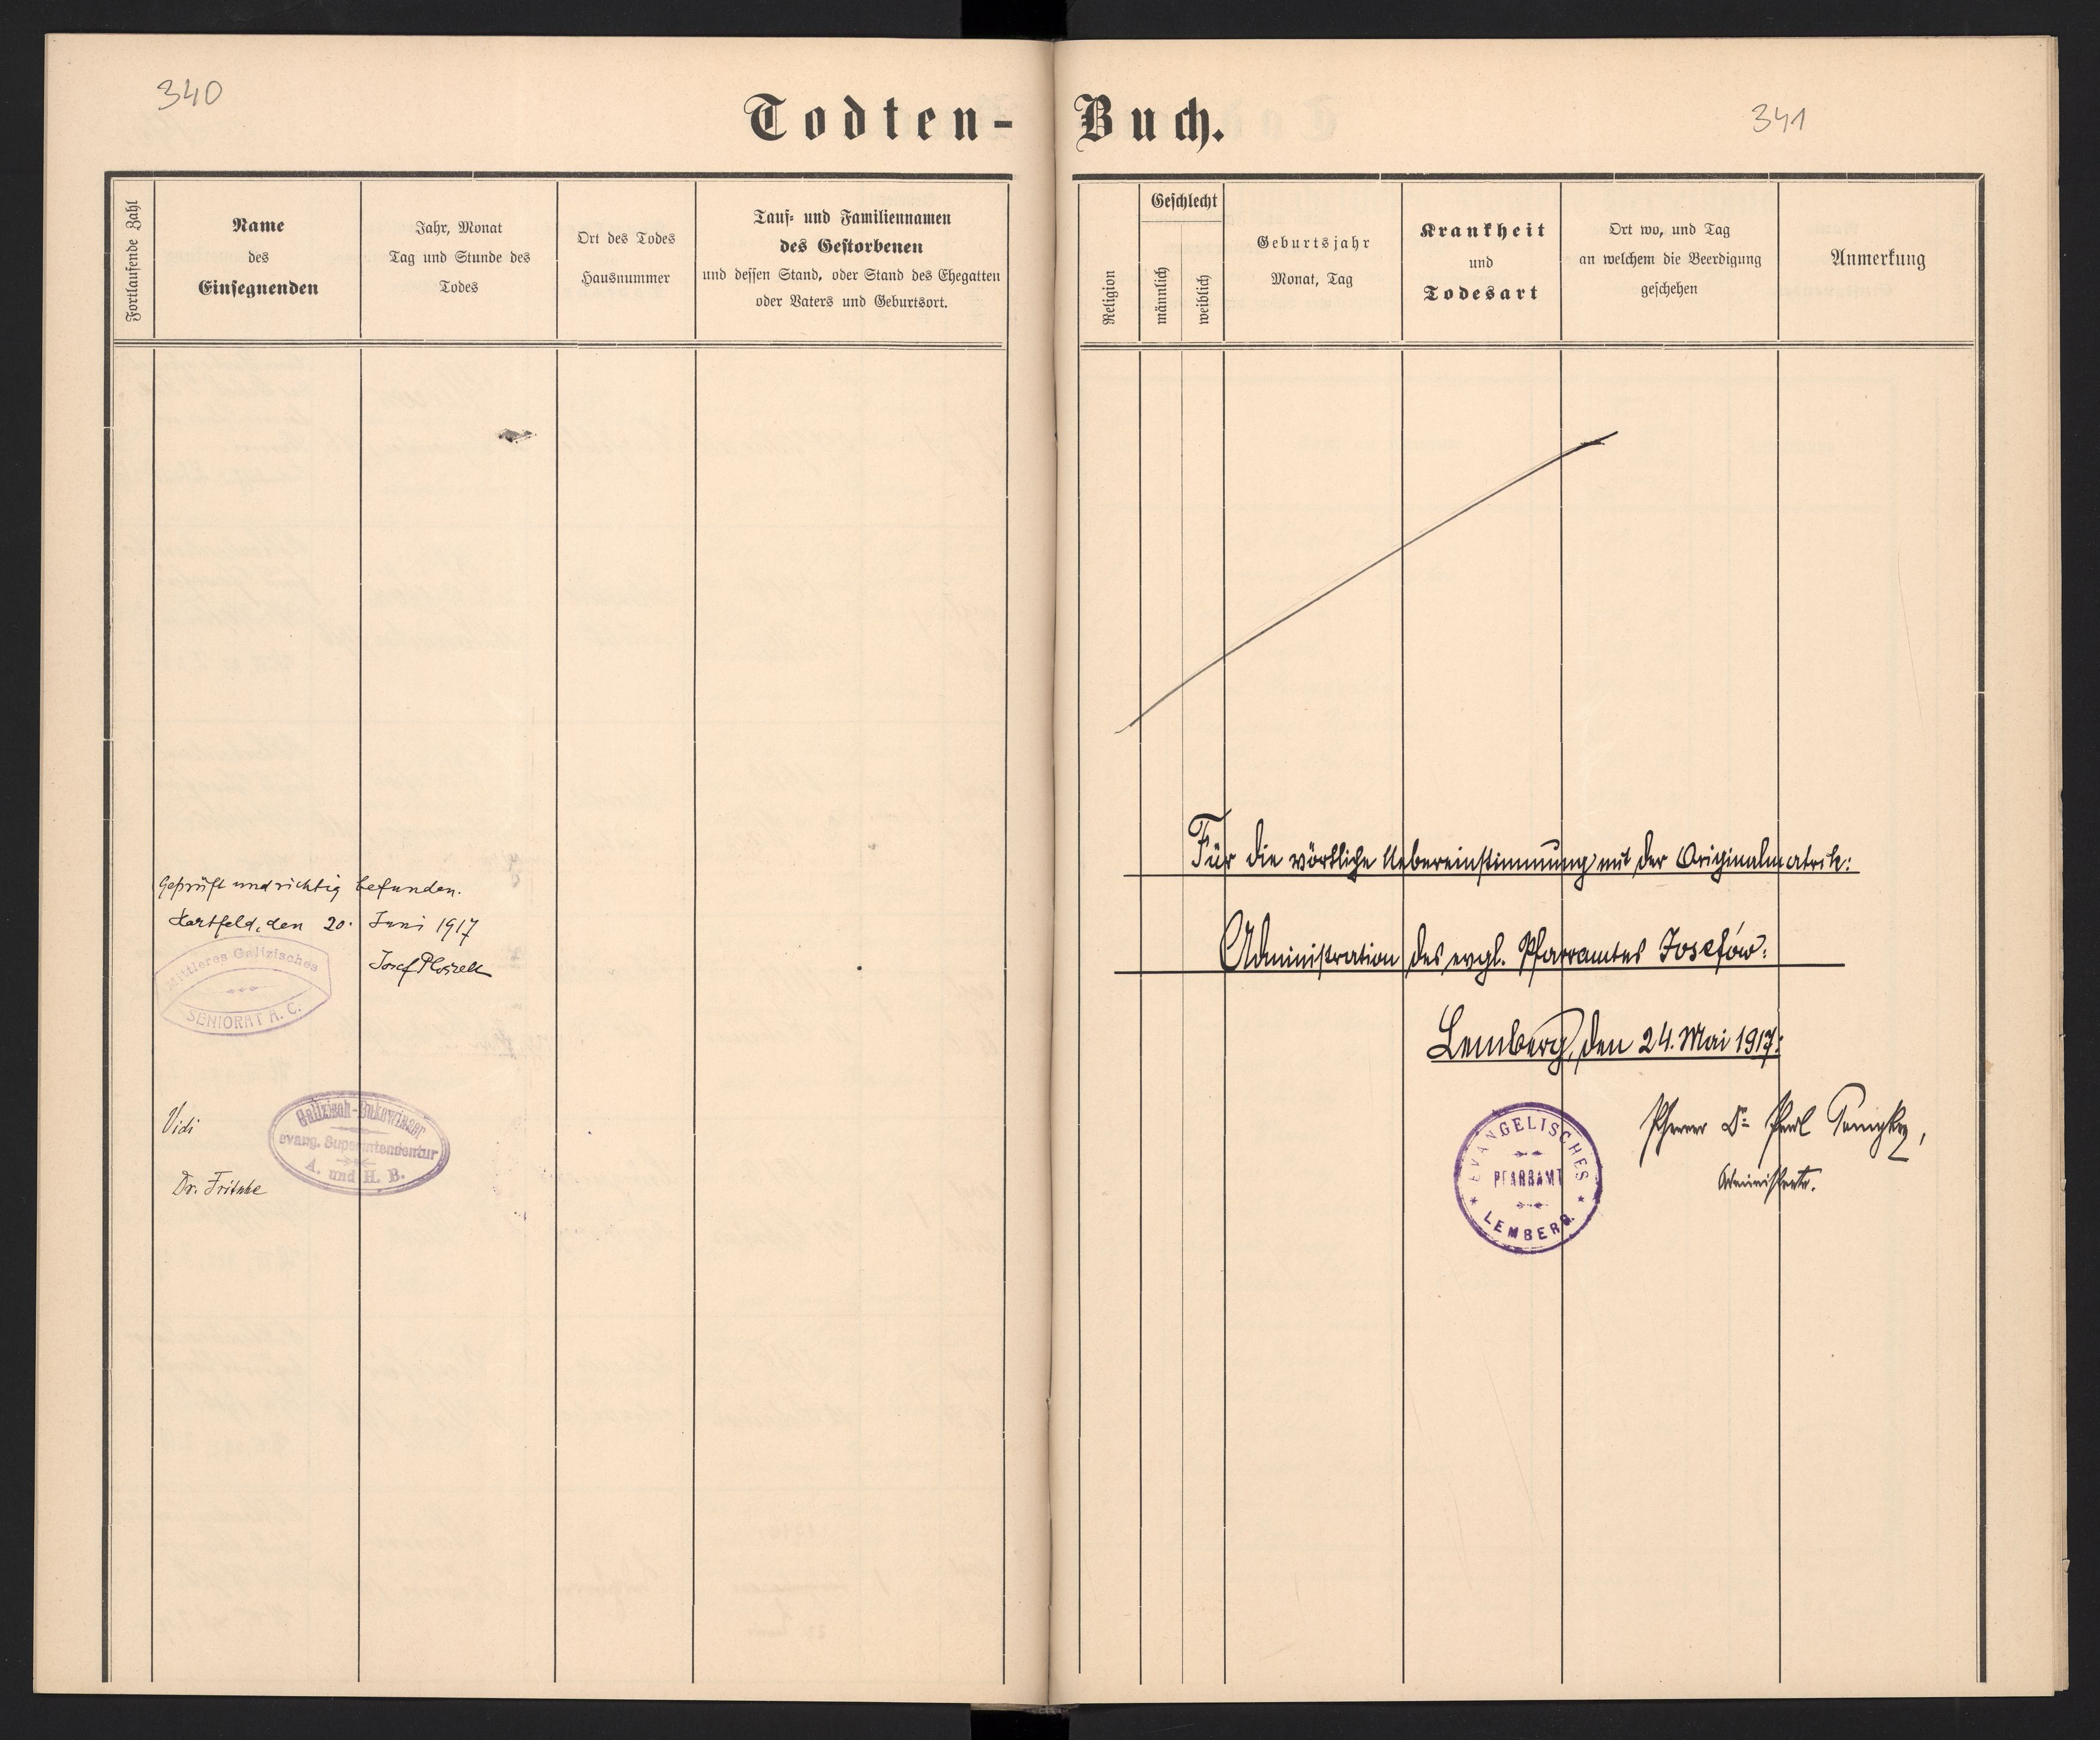 340
Todten-
Fortlaufende Zahl
Name
des
Einsegnenden
Jahr, Monat
Tag und Stunde des
Todes
Ort des Todes
Hausnummer
Tauf- und Familiennamen
des Gestorbenen
und dessen Stand, oder Stand des Ehegatten
oder Vaters und Geburtsort.
Geprüft und richtig befunden.
Hartfeld, den 20. Juni 1917
Josef
Mittleres Galizisches
SENIORAT A. C.
Vidi
Galizisch-Bukowinaer
evang. Superintendentur
A. und H. B.
Dr. Fritsche
Buch.
341
Religion
Geschlecht
männlich
weiblich
Geburtsjahr
Monat, Tag
Krankheit
und
Todesart
Ort wo, und Tag
an welchem die Beerdigung
geschehen
Anmerkung
Für die wörtliche Uebereinstimmung mit der Originalmatrik:
Administration des evgl. Pfarramtes Josefów:
Lemberg, den 24. Mai 1917:
EVANGELISCHES
PFARRAMT
LEMBERG.
Pfarrer Dr.
Administrator.